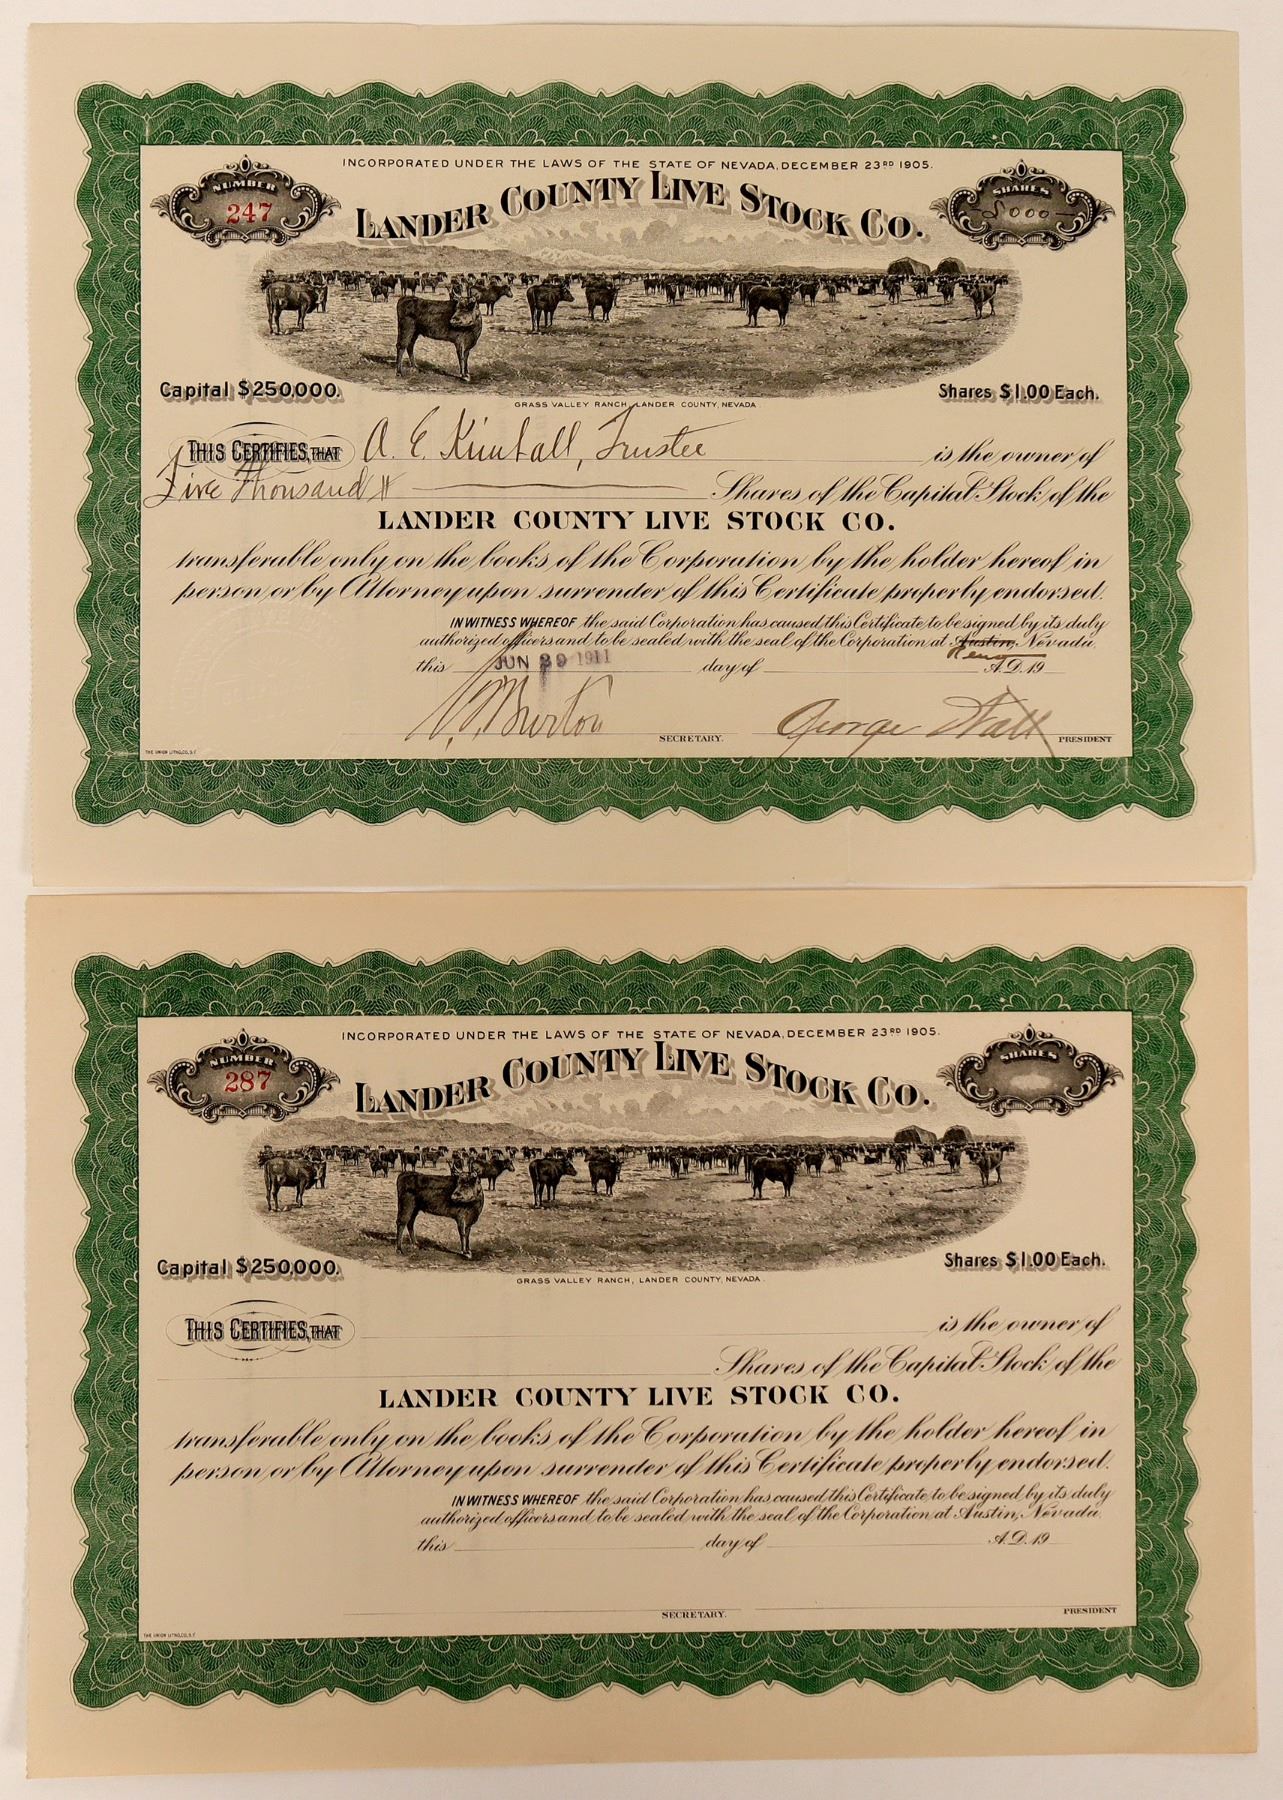 INCORPORATED UNDER THE LAWS OF THE STATE OF NEVADA, DECEMBER 23RD 1905.
NUMBER
247
LANDER COUNTY LIVE STOCK CO.
SHARES
5000-
Capital $250,000.
Shares $1.00 Each.
GRASS VALLEY RANCH, LANDER COUNTY, NEVADA
THIS CERTIFIES, THAT A. E. Kimball, Trustee is the owner of
Five Thousand Shares of the Capital Stock of the
LANDER COUNTY LIVE STOCK CO.
transferable only on the books of the Corporation by the holder hereof in
person or by Attorney upon surrender of this Certificate properly endorsed.
IN WITNESS WHEREOF the said Corporation has caused this Certificate to be signed by its duly
authorized officers and to be sealed with the seal of the Corporation at Austin, Nevada.
Reno
this JUN 29 1911 day of A.D. 19
Burton SECRETARY. George Wall PRESIDENT
THE UNION LITHO. CO. S.F.
INCORPORATED UNDER THE LAWS OF THE STATE OF NEVADA, DECEMBER 23RD 1905.
NUMBER
287
LANDER COUNTY LIVE STOCK CO.
SHARES
Capital $250,000.
Shares $1.00 Each.
GRASS VALLEY RANCH, LANDER COUNTY, NEVADA.
THIS CERTIFIES, THAT is the owner of
Shares of the Capital Stock of the
LANDER COUNTY LIVE STOCK CO.
transferable only on the books of the Corporation by the holder hereof in
person or by Attorney upon surrender of this Certificate properly endorsed.
IN WITNESS WHEREOF the said Corporation has caused this Certificate to be signed by its duly
authorized officers and to be sealed with the seal of the Corporation at Austin, Nevada.
this day of A.D. 19
SECRETARY. PRESIDENT
THE UNION LITHO. CO. S.F.